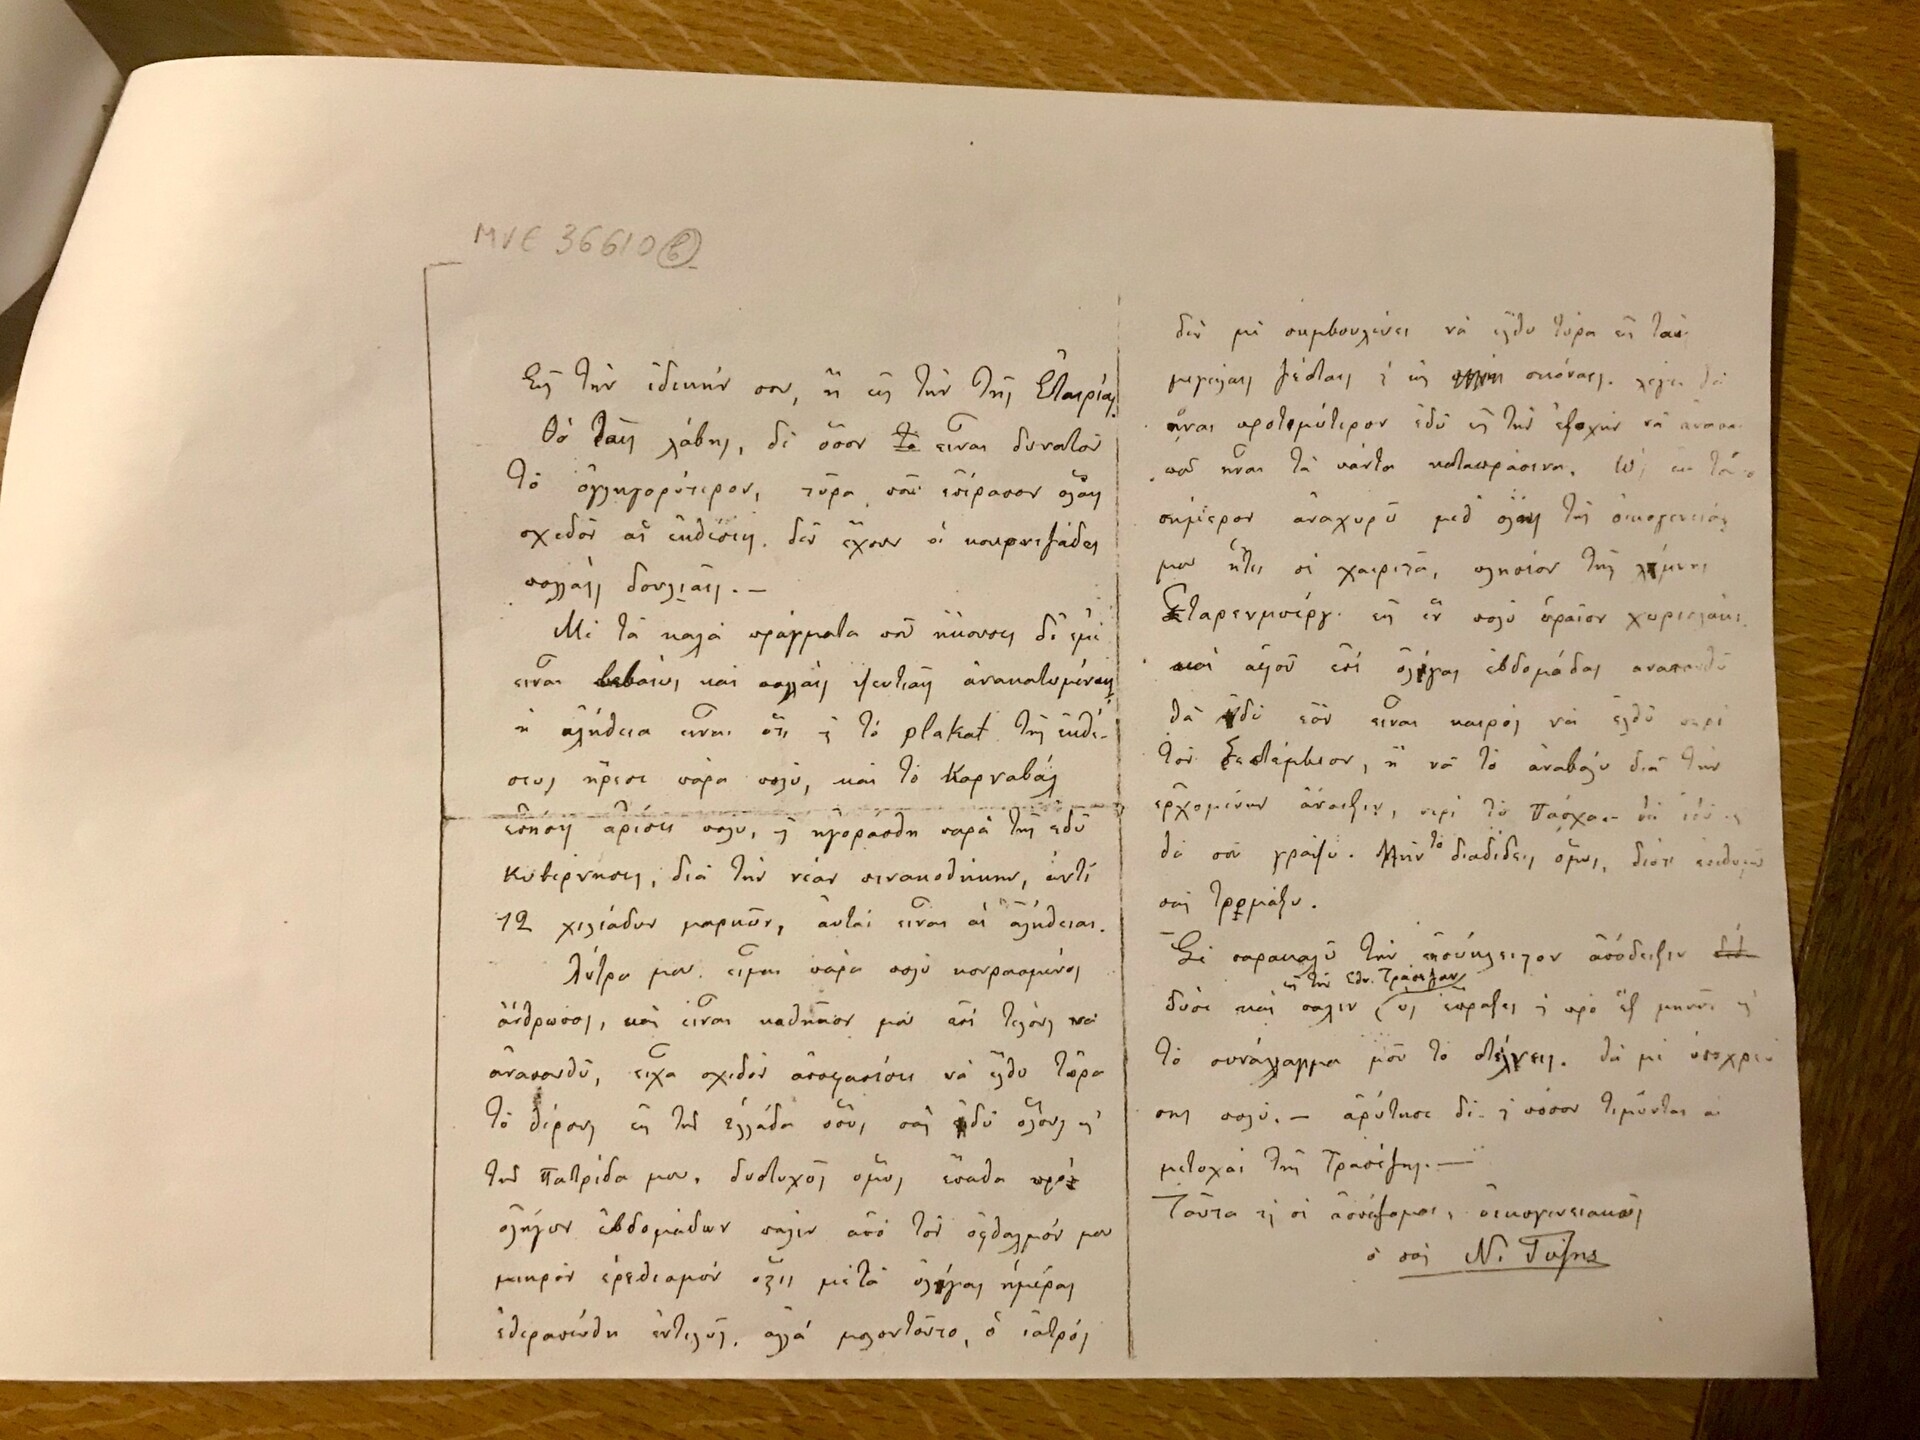 MVE 36610 β
Εἰς τὴν ἰδικήν σου, ἢ εἰς τὴν τῆς Ἑταιρίας
θὰ ταῖς λάβῃς, δι' ὅσον εἶναι δυνατὸν
τὸ ὀγλιγορώτερον, τώρα ποῦ ἐπέρασαν ὅλαι
σχεδὸν αἱ ἐκθέσεις. δὲν ἔχουν οἱ κορνιζάδες
πολλαῖς δουλιαῖς. —
Μὲ τὰ καλὰ πράγματα ποῦ ἤκουσες δι' ἐμὲ
εἶναι βεβαίως καὶ πολλαῖς ψευτιαῖς ἀνακατωμέναις
ἡ ἀλήθεια εἶναι ὅτι καὶ τὸ plakat τῆς ἐκθέ-
σεως ἤρεσε πάρα πολύ, καὶ τὸ Καρναβάλ
ἐπίσης ἀρέσει πολυ, καὶ ἠγοράσθη παρὰ τῆς ἐδῶ
Κυβερνήσεως, διὰ τὴν νέαν πινακοθήκην, ἀντὶ
12 χιλιάδων μαρκῶν, αὐταὶ εἶναι αἱ ἀλήθειαι.
Λύτρα μου. εἶμαι πάρα πολὺ κουρασμένος
ἄνθρωπος, καὶ εἶναι καθῆκον μου ἐπὶ τέλους νὰ
ἀναπαυθῶ, εἶχα σχεδὸν ἀποφασίσει νὰ ἔλθω τώρα
τὸ θέρος εἰς τὴν Ἑλλάδα σας, σᾶς ἰδῶ ὅλους καὶ
τὴν πατρίδα μου, δυστυχῶς ὅμως ἔπαθα πρὸ
ὀλίγων ἑβδομάδων πάλιν ἀπὸ τὸν ὀφθαλμόν μου
μικρὸν ἐρεθισμὸν ὅστις μετὰ ὀλίγας ἡμέρας
ἐθεραπεύθη ἐντελῶς. ἀλλὰ μολοντοῦτο, ὁ ἰατρὸς
δὲν μὲ συμβουλεύει νὰ ἔλθω τώρα εἰς ταῖς
μεγάλαις ζέσταις καὶ εἰς σκόναις. λέγει θὰ
ἦναι προτιμώτερον ἐδῶ εἰς τὴν ἐξοχὴν νὰ
ποῦ ἦναι τὰ πάντα καταπράσινα.
σήμερον ἀναχωρῶ μεθ' ὅλης τῆς οἰκογενείας
μου ἥτις σὲ χαιρετᾶ, πλησίον τῆς λίμνης
Σταρενμπέργ. εἰς ἓν πολὺ ὡραῖον χωριουλάκι.
καὶ ἀφοῦ ἐπὶ ὀλίγας ἑβδομάδας αναπαυθῶ
θὰ ἰδῶ ἐὰν εἶναι καιρὸς νὰ ἔλθω περὶ
τὸν Σεπτέμβριον, ἢ νὰ τὸ ἀναβάλω διὰ τὴν
ἐρχομένην ἄνοιξιν, περὶ τὸ Πάσχα
θὰ σοῦ γράψω. Μὴν τὸ διαδίδεις ὅμως, διότι ἐπιθυμῶ
σᾶς τρομάξω.
Σὲ παρακαλῶ τὴν ἐσώκλειστον ἀπόδειξιν
δῶσε καὶ πάλιν εἰς τὴν Ἐθν. Τράπεζαν (ὡς ἔπραξες καὶ πρὸ ἓξ μηνῶν καὶ
τὸ συνάλλαγμα μοῦ τὸ στέλνεις. θὰ μὲ ὑποχρεώ
σῃς πολύ. — ἀρώτησε δὲ καὶ πόσον τιμῶνται αἱ
μετοχαὶ τῆς Τραπέζης. —
Ταῦτα καὶ σὲ ἀσπάζομαι, οἰκογενειακῶς
ὁ σὸς Ν. Γύζης